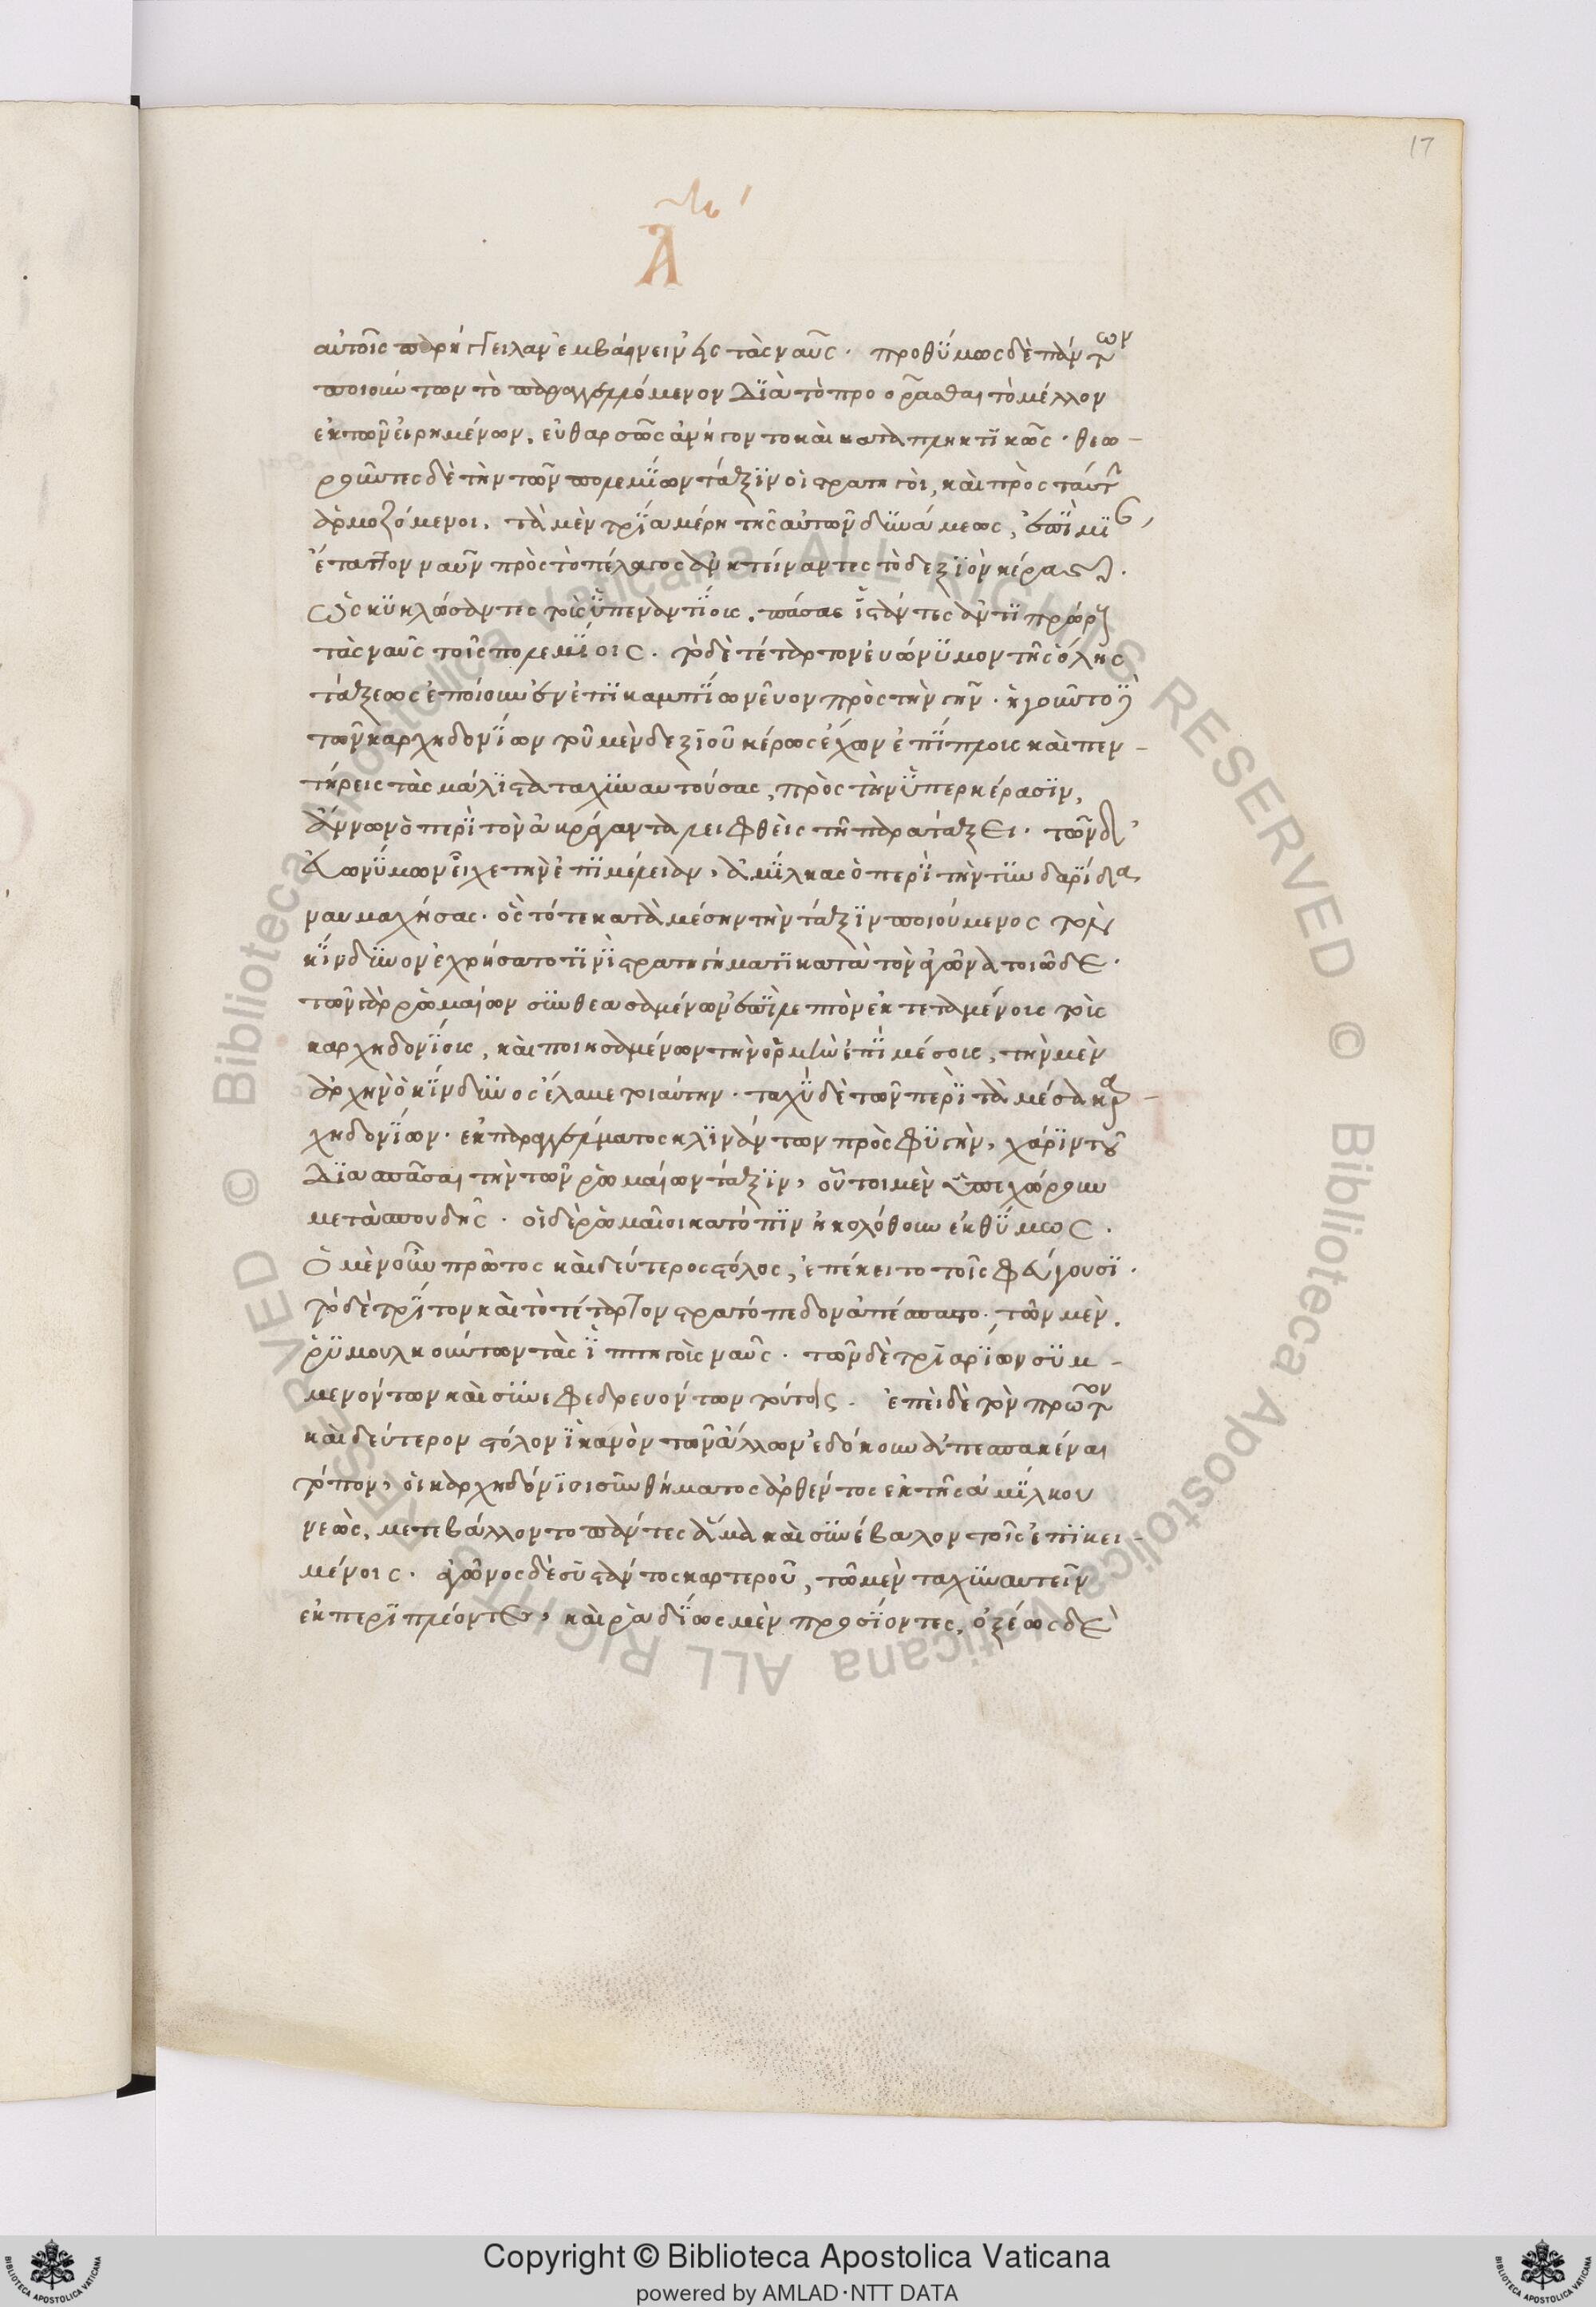 17
Α
αὐτοῖς παρήγγειλαν ἐμβαίνειν εἰς τὰς ναῦς. προθύμως δὲ πάντων
ποιούντων τὸ παραγγελλόμενον διὰ τὸ προορᾶσθαι τὸ μέλλον
ἐκ τῶν εἰρημένων, εὐθαρσῶς ἀνήγοντο καὶ καταπληκτικῶς. θεω-
ροῦντες δὲ τὴν τῶν πολεμίων τάξιν οἱ στρατηγοὶ, καὶ πρὸς ταύτην
ἁρμοζόμενοι, τὰ μὲν τρία μέρη τῆς αὐτῶν δυνάμεως, ἐπὶ μίαν
ἔταττον ναῦν πρὸς τὸ πέλαγος ἀνατείναντες τὸ δεξιὸν κέρας
ὡς κυκλώσαντες τοὺς ὑπεναντίους, πάσας ἱστάντες ἀντιπρώρους
τὰς ναῦς τοῖς πολεμίοις. τὸ δὲ τέταρτον εὐώνυμον τῆς ὅλης
τάξεως ἐποίουν ἐν ἐπικαμπίῳ νεῦον πρὸς τὴν γῆν. ἡγοῦντο δὲ
τῶν καρχηδονίων τοῦ μὲν δεξιοῦ κέρως ἔχων ἐπίπλους καὶ πεν-
τήρεις τὰς μάλιστα ταχυναυτούσας, πρὸς τὴν ὑπερκέρασιν,
ἄννων ὁ περὶ τὸν ἀκράγαντα λειφθεὶς τῇ παρατάξει. τῶν δ'
εὐωνύμων εἶχε τὴν ἐπιμέλειαν, ἀμίλκας ὁ περὶ τὴν τυνδαρίδα
ναυμαχήσας. ὃς τότε κατὰ μέσην τὴν τάξιν ποιούμενος τὸν
κίνδυνον ἐχρήσατο τινὶ στρατηγήματι κατὰ τὸν ἀγῶνα τοιῷδε.
τῶν γὰρ ῥωμαίων συνθεασαμένων ἐπὶ λεπτὸν ἐκτεταμένους τοὺς
καρχηδονίους, καὶ ποιησαμένων τὴν ὁρμὴν ἐπὶ μέσους, τὴν μὲν
ἀρχὴν ὁ κίνδυνος ἔλαβε τοιαύτην. ταχὺ δὲ τῶν περὶ τὰ μέσα καρ-
χηδονίων. ἐκ παραγγέλματος κλινάντων πρὸς φυγὴν, χάριν τοῦ
διασπᾶσαι τὴν τῶν ῥωμαίων τάξιν, οὗτοι μὲν ὑπεχώρουν
μετὰ σπουδῆς. οἱ δὲ ῥωμαῖοι κατόπιν ἠκολόθουν ἐκθύμως.
ὁ μὲν οὖν πρῶτος καὶ δεύτερος στόλος, ἐπέκειτο τοῖς φεύγουσι.
τὸ δὲ τρίτον καὶ τὸ τέταρτον στρατόπεδον ἀπέσπατο. τῶν μὲν
ῥυμουλκούντων τὰς ἱππηγοὺς ναῦς. τῶν δὲ τριαρίων συμ-
μενόντων καὶ συνεφεδρευόντων τούτοις. ἐπεὶ δὲ τὸν πρῶτον
καὶ δεύτερον στόλον ἱκανὸν τῶν ἄλλων ἐδόκουν ἀπεσπακέναι
τόπον, οἱ καρχηδόνιοι συνθήματος ἀρθέντος ἐκ τῆς ἀμίλκου
νεὼς, μετεβάλλοντο πάντες ἅμα καὶ συνέβαλον τοῖς ἐπικει-
μένοις. ἀγῶνος δὲ συστάντος καρτεροῦ, τῷ μὲν ταχυναυτεῖν
ἐκπεριπλέοντες, καὶ ῥᾳδίως μὲν προσιόντες, ὀξέως δὲ